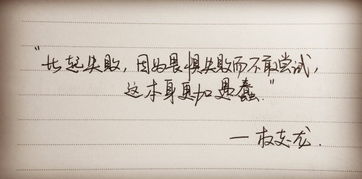 “比起失败，因为畏惧失败而不敢尝试，
这本身更加愚蠢.”
—权志龙.